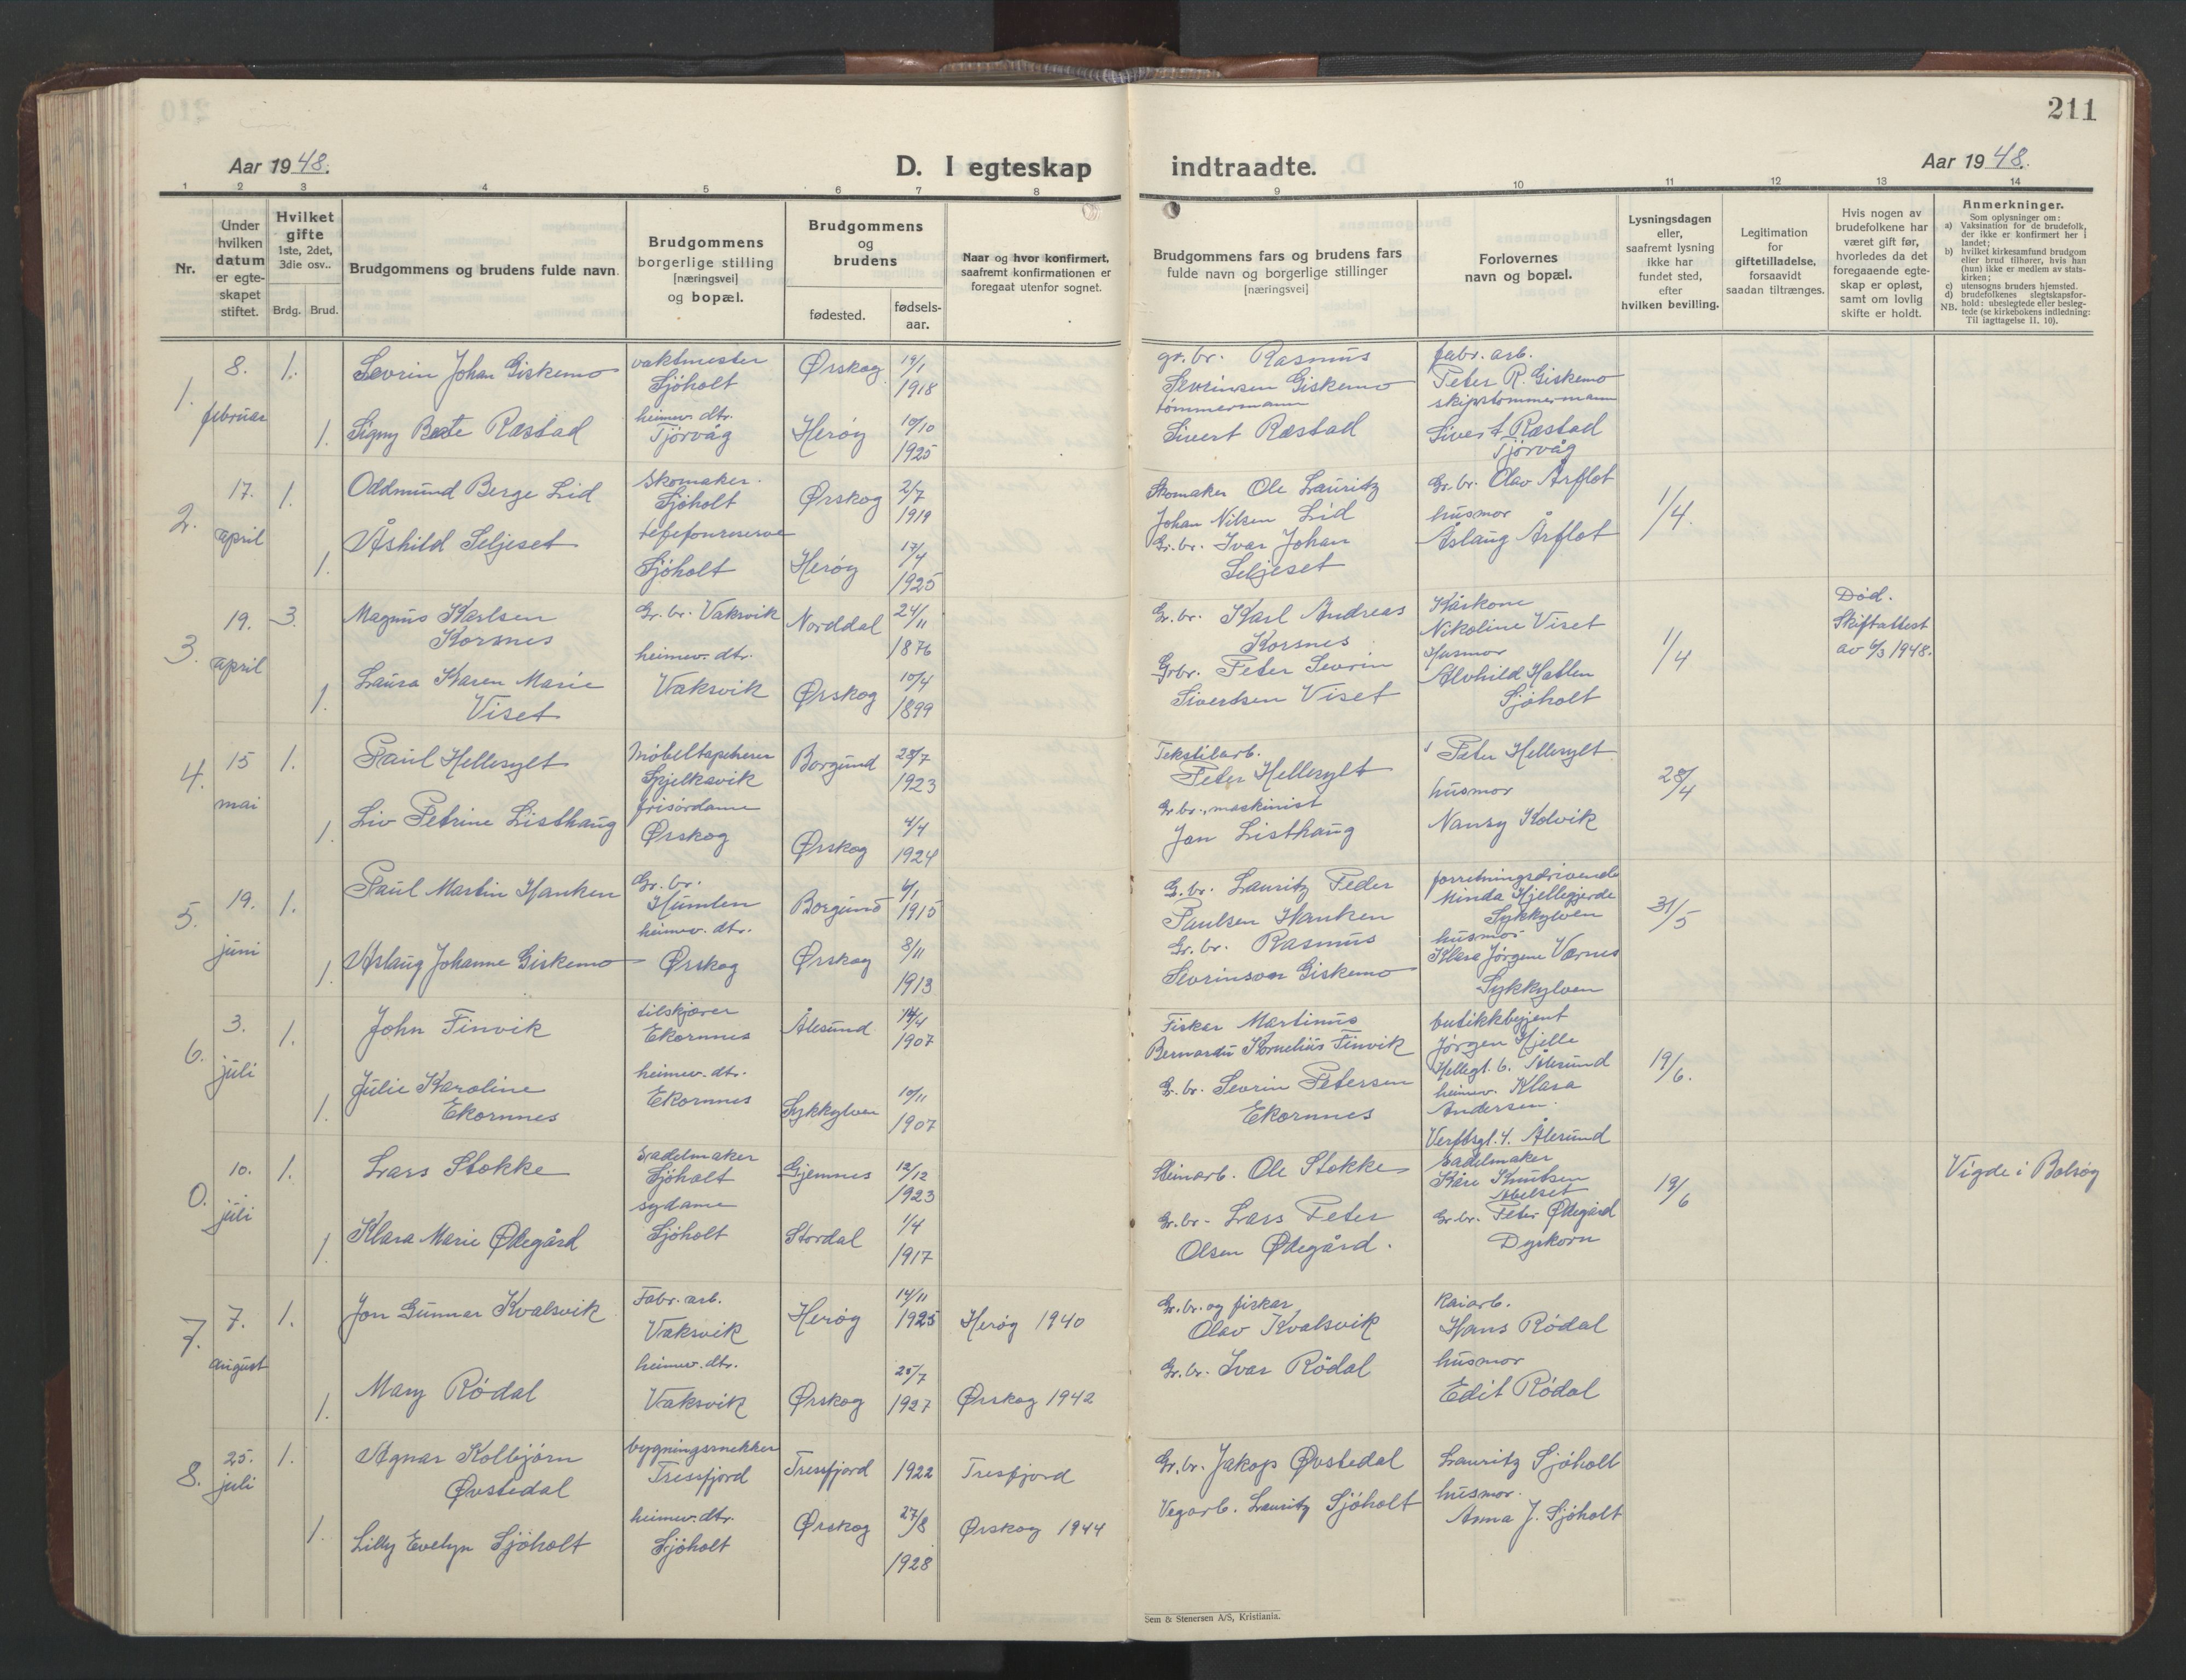 211
Aar 1948.
D. I egteskap indtraadte.
Aar 1948.
1 2 3 4 5 6 7 8 9 10 11 12 13 14
Nr.
Under hvilken datum er egteskapet stiftet.
Hvilket gifte 1ste, 2det, 3die osv..
Brdg. Brud.
Brudgommens og brudens fulde navn.
Brudgommens borgerlige stilling [næringsvei] og bopæl.
Brudgommens og brudens
fødested.
fødselsaar.
Naar og hvor konfirmert, saafremt konfirmationen er foregaat utenfor sognet.
Brudgommens fars og brudens fars fulde navn og borgerlige stillinger [næringsvei]
Forlovernes navn og bopæl.
Lysningsdagen eller, saafremt lysning ikke har fundet sted, efter hvilken bevilling.
Legitimation for giftetilladelse, forsaavidt saadan tiltrænges.
Hvis nogen av brudefolkene har været gift før, hvorledes da det foregaaende egteskap er opløst, samt om lovlig skifte er holdt.
Anmerkninger.
Som oplysninger om:
a) Vaksination for de brudefolk, der ikke er konfirmert her i landet;
b) hvilket kirkesamfund brudgom eller brud tilhører, hvis han (hun) ikke er medlem av statskirken;
c) utensogns bruders hjemsted.
d) brudefolkenes slegtskapsforhold: ubeslegtede eller beslegtede (se kirkebokens indledning: Til Iagttagelse II. 10).
NB.
1. 8. februar 1. Sevrin Johan Giskemo vaktmester Sjöholt Ørskog 14/1 1918 gr. br. Rasmus Sevrinsen Giskemo fabr. arb. Peter R. Giskemo
1. Signy Beate Rastad heimev. dtr. Tjörvåg Herøy 10/10 1925 tømmermann Sivert Rastad skipstømmermann Sivert Rastad Tjörvåg
2. 17. april 1. Oddmund Berge Lid Skomaker. Sjöholt Ørskog 2/7 1919 Skomaker Ole Lauritz Johan Nilsen Lid Gr. br. Olav Årflot 1/4.
1. Åshild Seljeset Sjöholt Herøy 17/4 1925 Gr. br. Ivar Johan Seljeset husmor Åslaug Årflot
3. 19. april 3. Magnus Karlsen Korsnes Gr. br. Vaksvik Norddal 24/11 1876 Gr. br. Karl Andreas Korsnes Kårkone Nikoline Viset 1/4 Död. Skiftattest av 6/3 1948.
1. Laura Karen Marie Viset heimev. dtr. Vaksvik Ørskog 10/4 1899 Grbr. Peter Sevrin Sivertsen Viset Husmor Alvhild Hatlen Sjöholt
4. 15 mai 1. Paul Hellesylt Møbeltapetserer Spjelkavik Borgund 28/7 1923 Tekstilarb. Peter Hellesylt Peter Hellesylt 28/4
1. Liv Petrine Listhaug frisördame Ørskog Ørskog 4/4 1924 Gr. br., maskinist Jan Listhaug husmor Nansy Kolvik
5. 19. juni 1. Paul Martin Hanken Gr. br. Humlen Borgund 1915 G. br. Lauritz Peder Paulsen Hanken forretningsdrivende Minda Hjellegjerde Sykkylven 31/5
1. Aslaug Johanne Giskemo heimev. dtr. Ørskog Ørskog 8/11 1913 Gr. br. Rasmus Sevrinson Giskemo husmor Klara JørgeneVærnes Sykkylven
6. 3. juli 1. John Finvik tilskjærer Ekornnes Ålesund 14/4 1907 Fisker Martinus Bernardu Kornelius Finvik butikkbetjent Jørgen Hjelle Ålesund 19/6.
1. Julie Karoline Ekornnes heimev. dtr. Ekornnes Sykkylven 10/11 1907 Gr. br. Sevrin Petersen Ekornnes heimev. Klara Andersen. Verftsgt. 4. Ålesund
0. 10. juli 1. Lars Stokke sadelmaker Sjöholt Gjemnes 12/12 1923 Steinarb. Ole Stokke sadelmaker Kåre Knutsen Abelset 19/6 Vigde i Bolsøy
1. Klara Marie Ødegård sydame Sjöholt Stordal 1/4 1917 Gr. br. Lars Peter Olsen Ødegård. Gr. br. Peter Ødegård Dyrkorn
7. 7. august 1. Jon Gunnar Kvalsvik Fabr. arb. Vaksvik Herøy 14/11 1925 Herøy 1940 Gr. br. og fisker Olav Kvalsvik Kaiarb. Hans Rödal
1. Mary Rödal heimev. dtr. Vaksvik Ørskog 25/7 1927 Ørskog 1942 Gr. br. Ivar Rödal husmor Edit Rödal
8. 25. juli 1. Agnar Kolbjörn Øvstedal bygningssnekker Tressfjord Tressfjord 1922 Tresfjord Gr. br. Jakop Øvstedal Lauritz Sjöholt
1. Lilly Evelyn Sjöholt heimev. dtr. Sjöholt Ørskog 27/8 1928 Ørskog 1944 Vegarb. Lauritz Sjöholt husmor. Anna J. Sjöholt
Sem & Stenersen A/S, Kristiania.